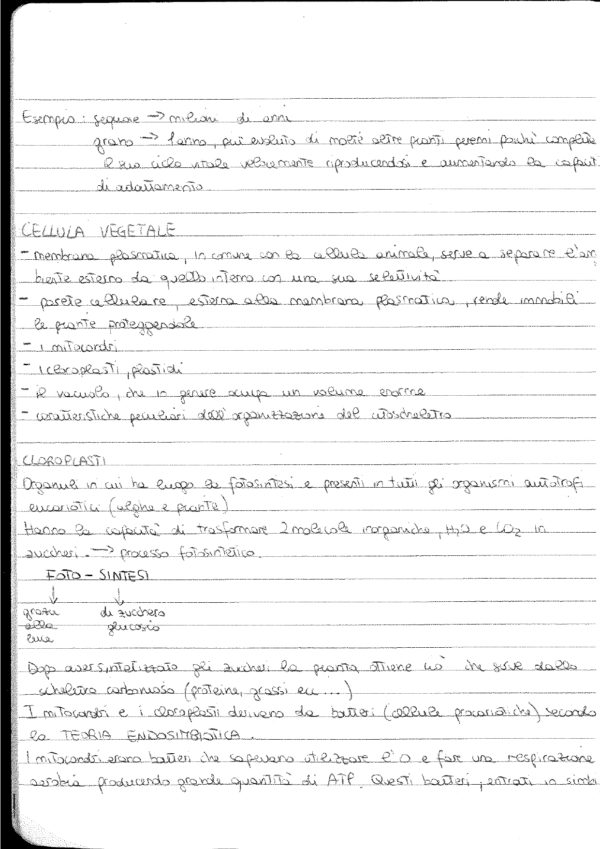 Esempio: sequoie → milioni di anni
grano → 1 anno, più evoluto di molte altre piante perenni poichè completa
il suo ciclo vitale velocemente riproducendosi e aumentando la capacit
di adattamento.
CELLULA VEGETALE
- membrana plasmatica, in comune con la cellula animale, serve a separare l'am
biente esterno da quello interno con una sua selettività
- parete cellulare, esterna alla membrana plasmatica, rende immobili
le piante proteggendole
- i mitocondri
- i cloroplasti, plastidi
- il vacuolo, che in genere occupa un volume enorme
- caratteristiche peculiari dell'organizzazione del citoscheletro
CLOROPLASTI
Organuli in cui ha luogo la fotosintesi e presenti in tutti gli organismi autotrofi
eucariotici (alghe e piante)
Hanno la capacità di trasformare 2 molecole inorganiche, H₂O e CO₂ in
zuccheri. → processo fotosintetico.
FOTO - SINTESI
↓ ↓
grazie di zucchero
alla glucosio
luce
Dopo aver sintetizzato gli zuccheri la pianta ottiene ciò che serve dallo
scheletro carbonioso (proteine, grassi ecc...)
I mitocondri e i cloroplasti derivano da batteri (cellule procariotiche) secondo
la TEORIA ENDOSIMBIOTICA.
I mitocondri erano batteri che sapevano utilizzare l'O e fare una respirazione
aerobia producendo grande quantità di ATP. Questi batteri, entrati in simbi